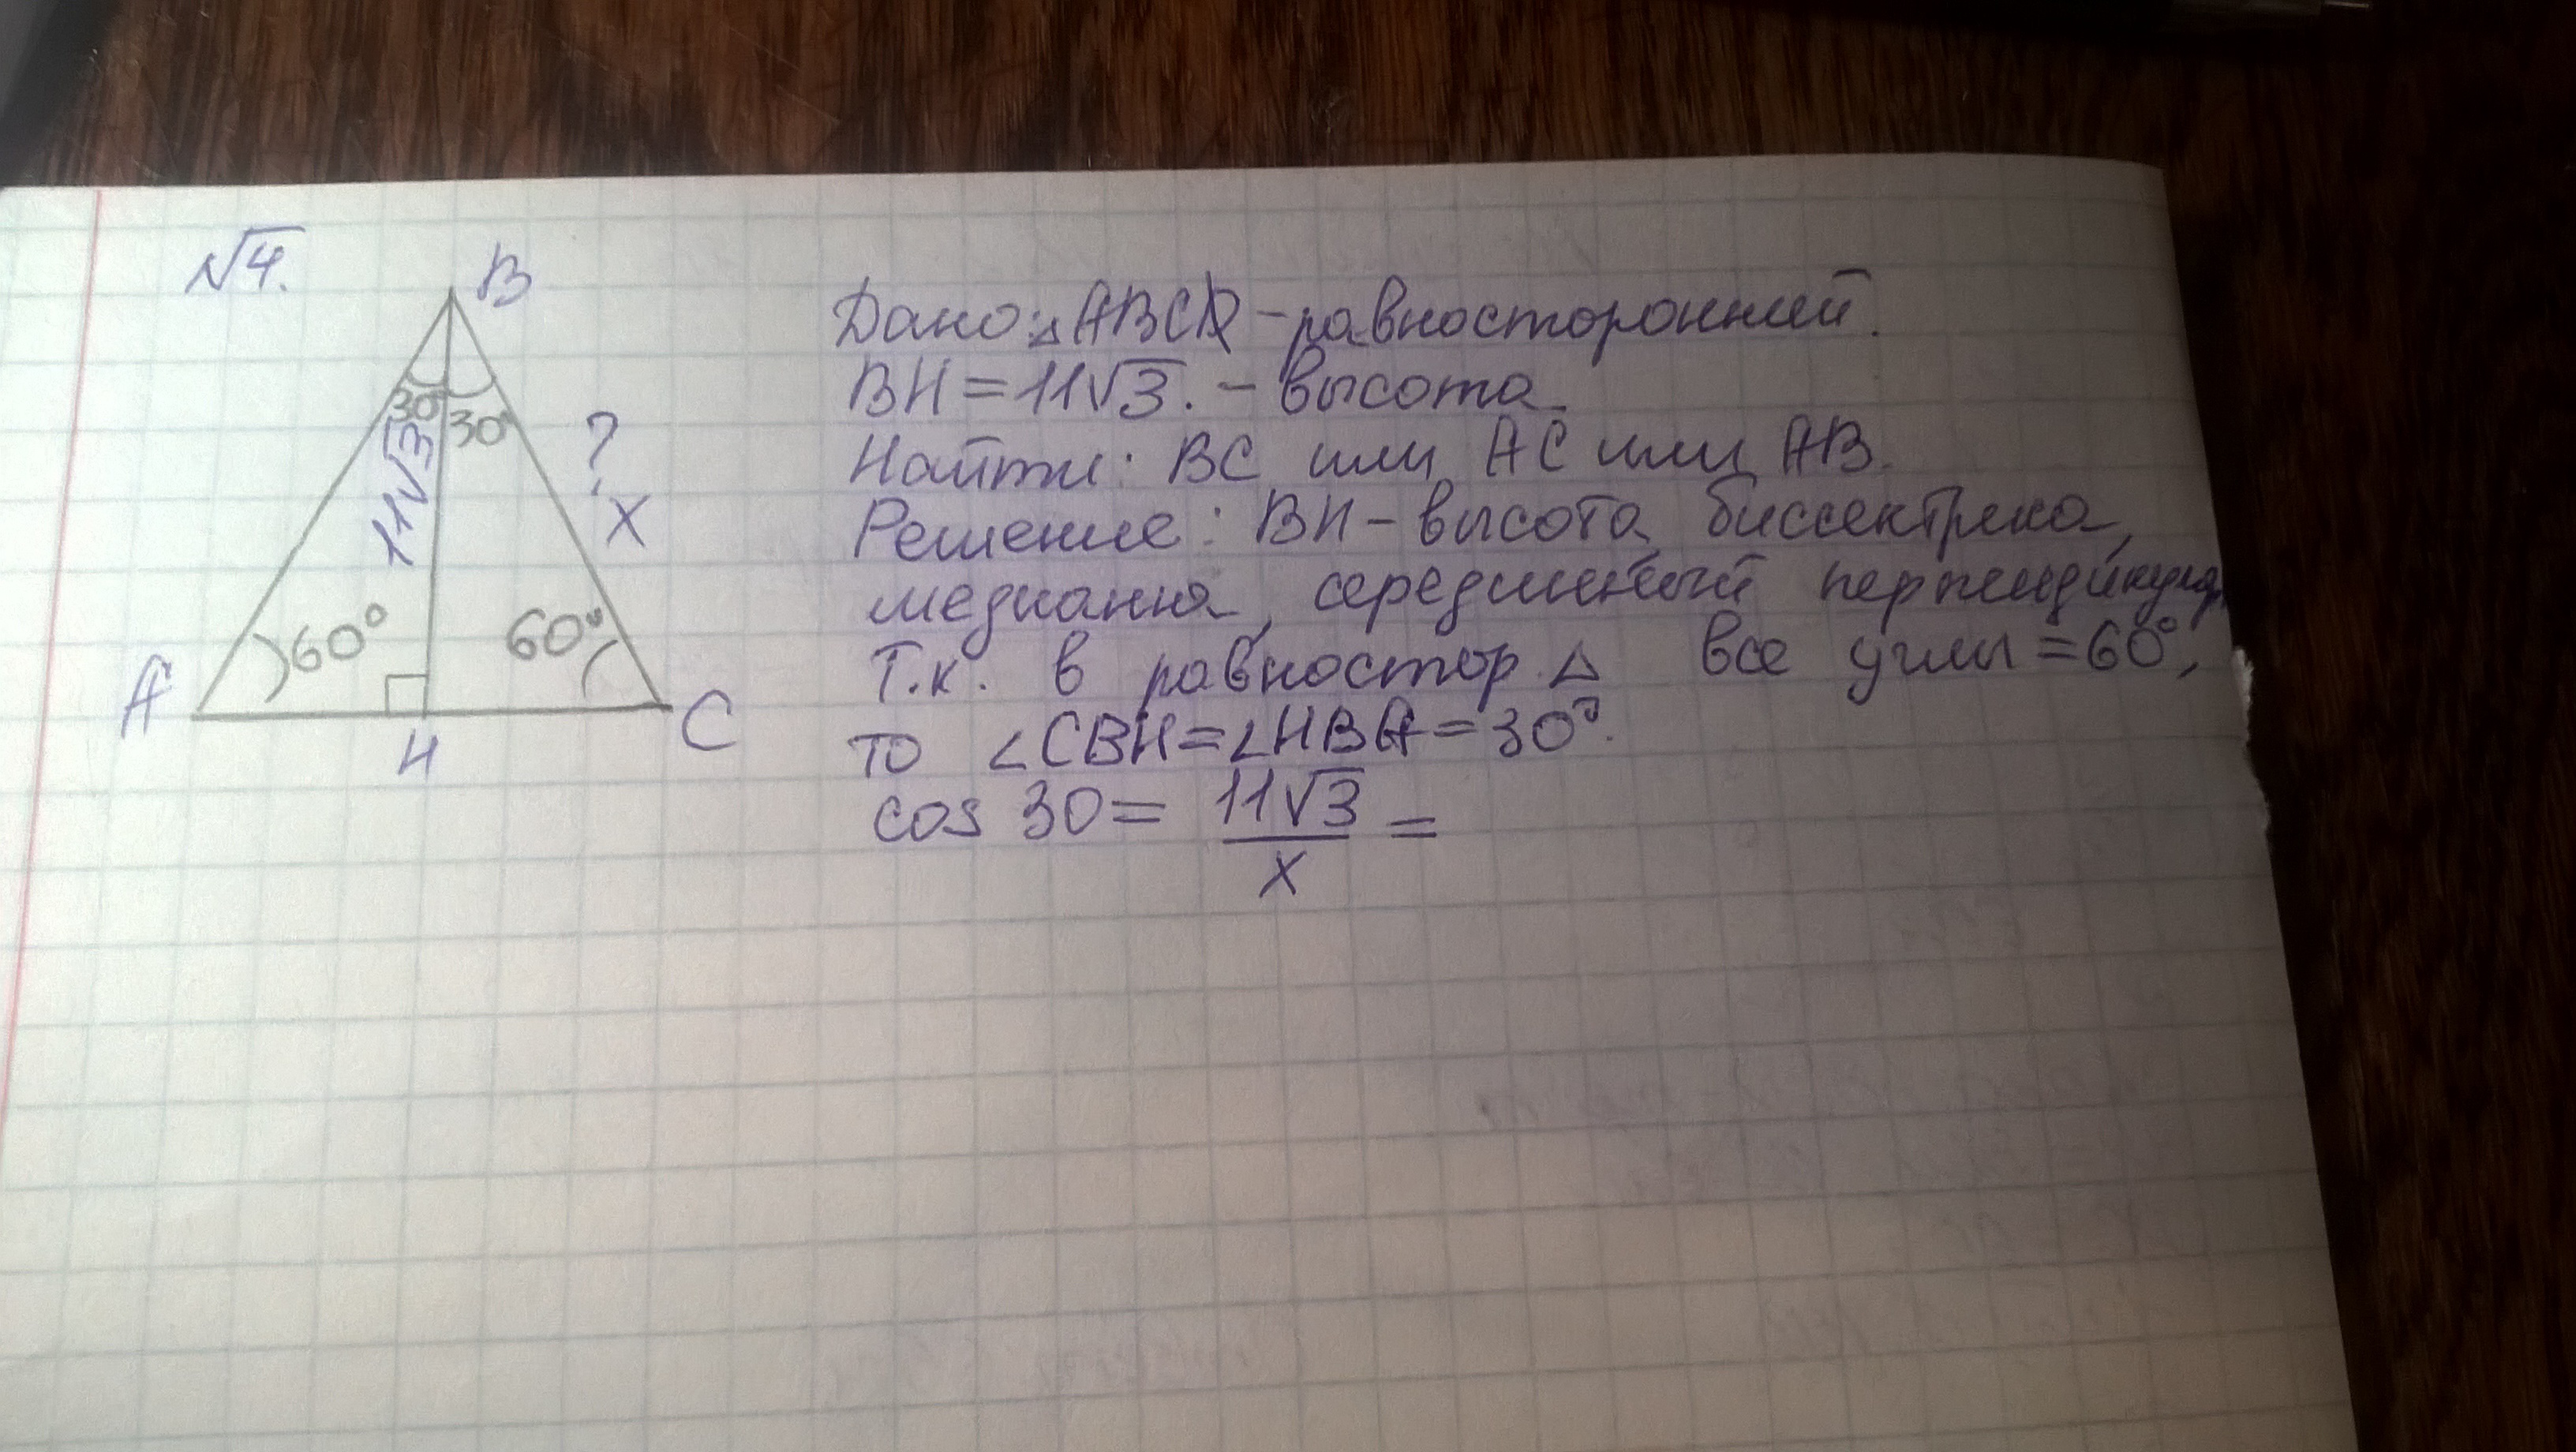 √4.
B
30°
30°
11√3
?
x
60°
60°
A
H
C
Дано: △ABC – равносторонний.
BH = 11√3. – высота.
Найти: BC или AC или AB.
Решение: BH – высота, биссектриса,
медиана, серединный перпендикуляр
Т.к. в равностор. △ все углы = 60°,
то ∠CBH = ∠HBA = 30°.
cos 30 = 11√3/x =